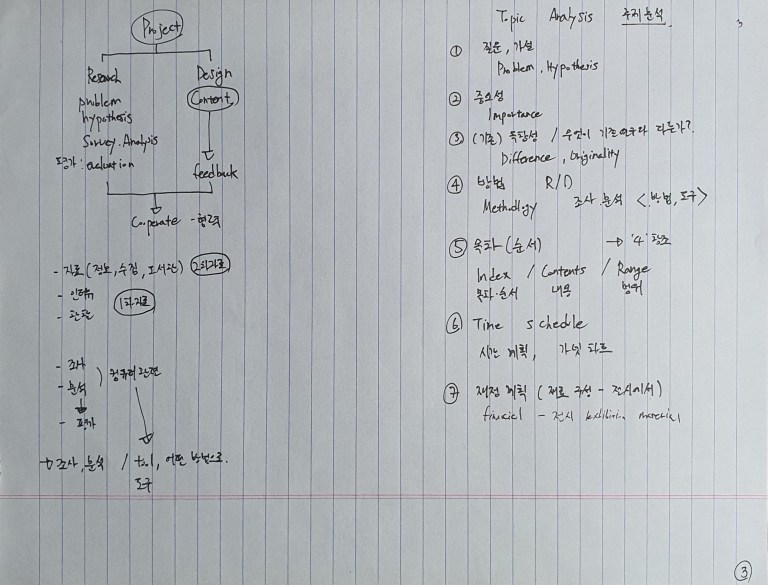 Project
Research
problem
hypothesis
Survey. Analysis
평가: evaluation
Design
Content
feedback
Cooperate - 협력
- 자료 (정보, 수집, 도서관) 2차자료
- 인터뷰
- 관찰
1차자료
- 조사
- 분석
- 평가
컴퓨터 관련
→ 조사, 분석 / tool, 어떤 방법으로.
도구
Topic Analysis 주제분석
3
① 질문, 가설
Problem, Hypothesis
② 중요성
Importance
③ (기존) 독창성 / 무엇이 기존연구와 다른가?
Difference, Originality
④ 방법 R/D
Methodlogy 조사 분석 <방법, 도구>
⑤ 목차 (순서) → '4' 참조
Index / Contents / Range
목차·순서 내용 범위
⑥ Time schedule
시간 계획,
⑦ 재정 계획 (재료 구성 - 전시에서)
finacial - 전시 exhibition material
③